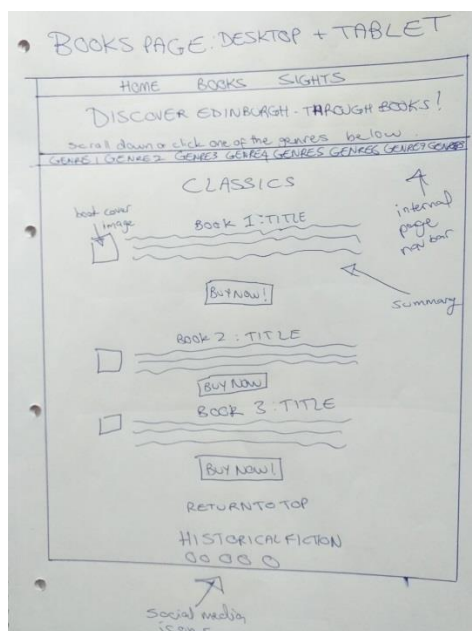 BOOKS PAGE: DESKTOP + TABLET
HOME BOOKS SIGHTS
DISCOVER EDINBURGH - THROUGH BOOKS!
scroll down or click one of the genres below.
GENRE 1 GENRE 2 GENRE3 GENRE4 GENRE5 GENRE6 GENRE7 GENRE8
CLASSICS
internal
page
nav bar
book cover
image
BOOK 1: TITLE
summary
BUY NOW!
BOOK 2: TITLE
BUY NOW
BOOK 3: TITLE
BUY NOW!
RETURN TO TOP
HISTORICAL FICTION
social media
icons